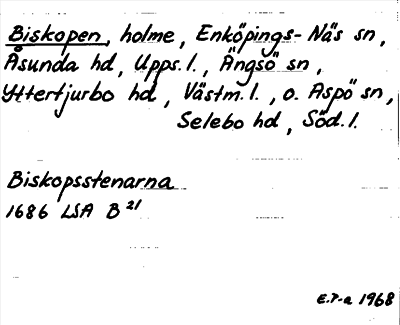 Biskopen, holme, Enköpings-Näs sn,
Åsunda hd, Upps.l., Ängsö sn,
Yttertjurbo hd, Västm.l., o. Aspö sn,
Selebo hd, Söd.l.
Biskopsstenarna
1686 LSA B 21
E.P-a 1968